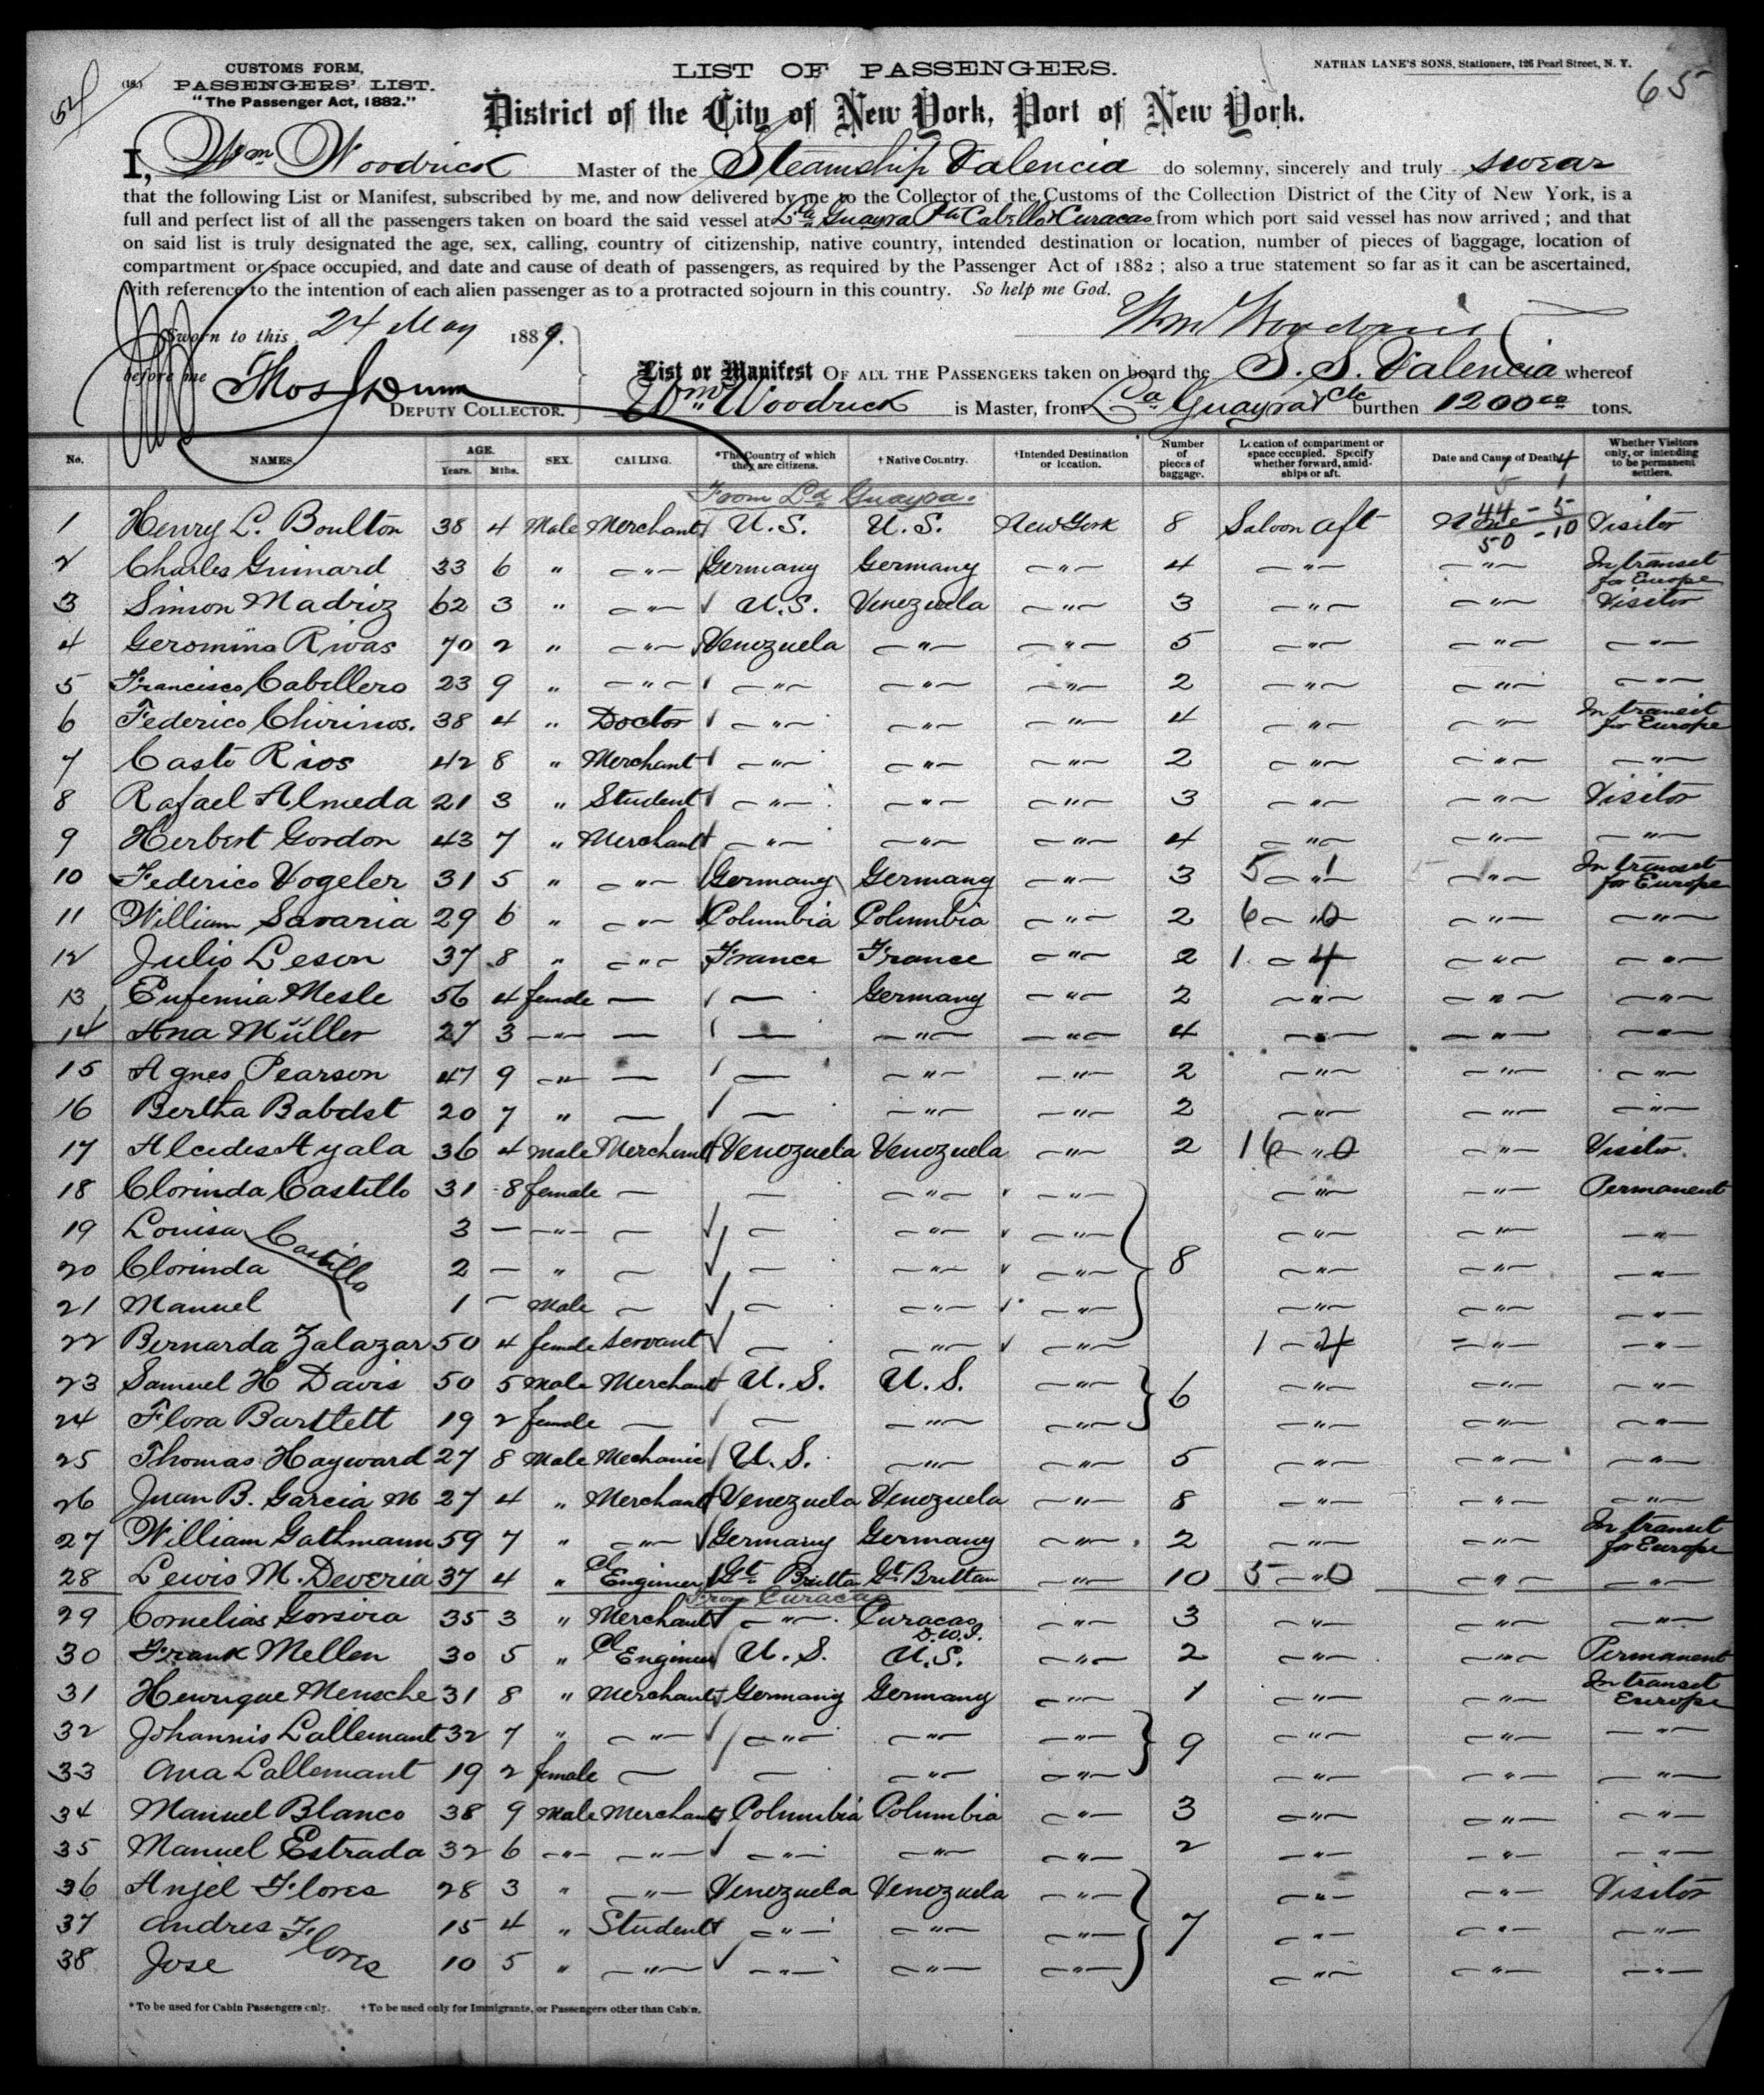 52
(18.)
CUSTOMS FORM,
PASSENGERS' LIST.
"The Passenger Act, 1882."
LIST OF PASSENGERS.
NATHAN LANE'S SONS, Stationers, 126 Pearl Street, N. Y.
65
District of the City of New York, Port of New York.
I, Wm Woodrick Master of the Steamship Valencia do solemny, sincerely and truly swear
that the following List or Manifest, subscribed by me, and now delivered by me to the Collector of the Customs of the Collection District of the City of New York, is a
full and perfect list of all the passengers taken on board the said vessel at La Guayra Pto Cabello & Curacao from which port said vessel has now arrived ; and that
on said list is truly designated the age, sex, calling, country of citizenship, native country, intended destination or location, number of pieces of baggage, location of
compartment or space occupied, and date and cause of death of passengers, as required by the Passenger Act of 1882 ; also a true statement so far as it can be ascertained,
with reference to the intention of each alien passenger as to a protracted sojourn in this country. So help me God.
Sworn to this 24 May 1889.
Wm Woodrick
before me Thos J Dunn
DEPUTY COLLECTOR.
List or Manifest OF ALL THE PASSENGERS taken on board the S. S. Valencia whereof
Wm Woodrick is Master, from La Guayra & Etc burthen 1200 00 tons.
No. NAMES. AGE. Years. Mths. SEX. CALLING. *The Country of which they are citizens. †Native Country. †Intended Destination or location. Number of pieces of baggage. Location of compartment or space occupied. Specify whether forward, amidships or aft. Date and Cause of Death. Whether Visitors only, or intending to be permanent settlers.
From La Guayra.
44 - 5
50 - 10
1 Henry L. Boulton 38 4 Male Merchant U.S. U.S. New York 8 Saloon aft None Visitor
2 Charles Guinard 33 6 " " Germany Germany " 4 " " In transit for Europe
3 Simon Madriz 62 3 " " U.S. Venezuela " 3 " " Visitor
4 Geromino Rivas 70 2 " " Venezuela " " 5 " " "
5 Francisco Cabillero 23 9 " " " " " 2 " " "
6 Federico Chirinos. 38 4 " Doctor " " " 4 " " In transit for Europe
7 Casto Rios 42 8 " Merchant " " " 2 " " "
8 Rafael Almeda 21 3 " Student " " " 3 " " Visitor
9 Herbert Gordon 43 7 " Merchant " " " 4 " " "
10 Federico Vogeler 31 5 " " Germany Germany " 3 5 " 1 " In transit for Europe
11 William Savaria 29 6 " " Columbia Columbia " 2 6 " 0 " "
12 Julio Leson 37 8 " " France France " 2 1 - 4 " "
13 Eufemia Mesle 56 4 female — — Germany " 2 " " "
14 Ana Müller 27 3 " — — " " 4 " " "
15 Agnes Pearson 47 9 " — — " " 2 " " "
16 Bertha Babdst 20 7 " — — " " 2 " " "
17 Alcides Ayala 36 4 male Merchant Venezuela Venezuela " 2 16 " 0 " Visitor.
18 Clorinda Castillo 31 8 female — — " " " " Permanent
19 Louisa Castillo 3 — " — — " " " " "
20 Clorinda 2 — " — — " " 8 " " "
21 Manuel 1 — Male — — " " " " "
22 Bernarda Zalazar 50 4 female servant — " " 1 - 4 " "
23 Samuel H Davis 50 5 Male Merchant U.S. U.S. " 6 " " "
24 Flora Bartlett 19 2 female — — " " " " "
25 Thomas Hayward 27 8 Male Mechanic U.S. " " 5 " " "
26 Juan B. Garcia M 27 4 " Merchant Venezuela Venezuela " 8 " " "
27 William Gathmann 59 7 " " Germany Germany " 2 " " In transit for Europe
28 Lewis M. Deveria 37 4 " Cl Engineer Gt Brittan Gt Brittan " 10 5 " 0 " "
From Curacao
29 Cornelias Gorsira 35 3 " Merchant " Curacao D.W.I. " 3 " " "
30 Frank Mellen 30 5 " Cl Engineer U.S. U.S. " 2 " " Permanent
31 Henrique Mensche 31 8 " Merchant Germany Germany " 1 " " In transit Europe
32 Johannis Lallemant 32 7 " " " " " 9 " " "
33 Ana Lallemant 19 2 female — — " " " " "
34 Manuel Blanco 38 9 Male Merchant Columbia Columbia " 3 " " "
35 Manuel Estrada 32 6 " " " " " 2 " " "
36 Anjel Flores 28 3 " " Venezuela Venezuela " " " Visitor
37 Andres Flores 15 4 " Student " " " 7 " " "
38 Jose 10 5 " " " " " " " "
*To be used for Cabin Passengers only. †To be used only for Immigrants, or Passengers other than Cabin.